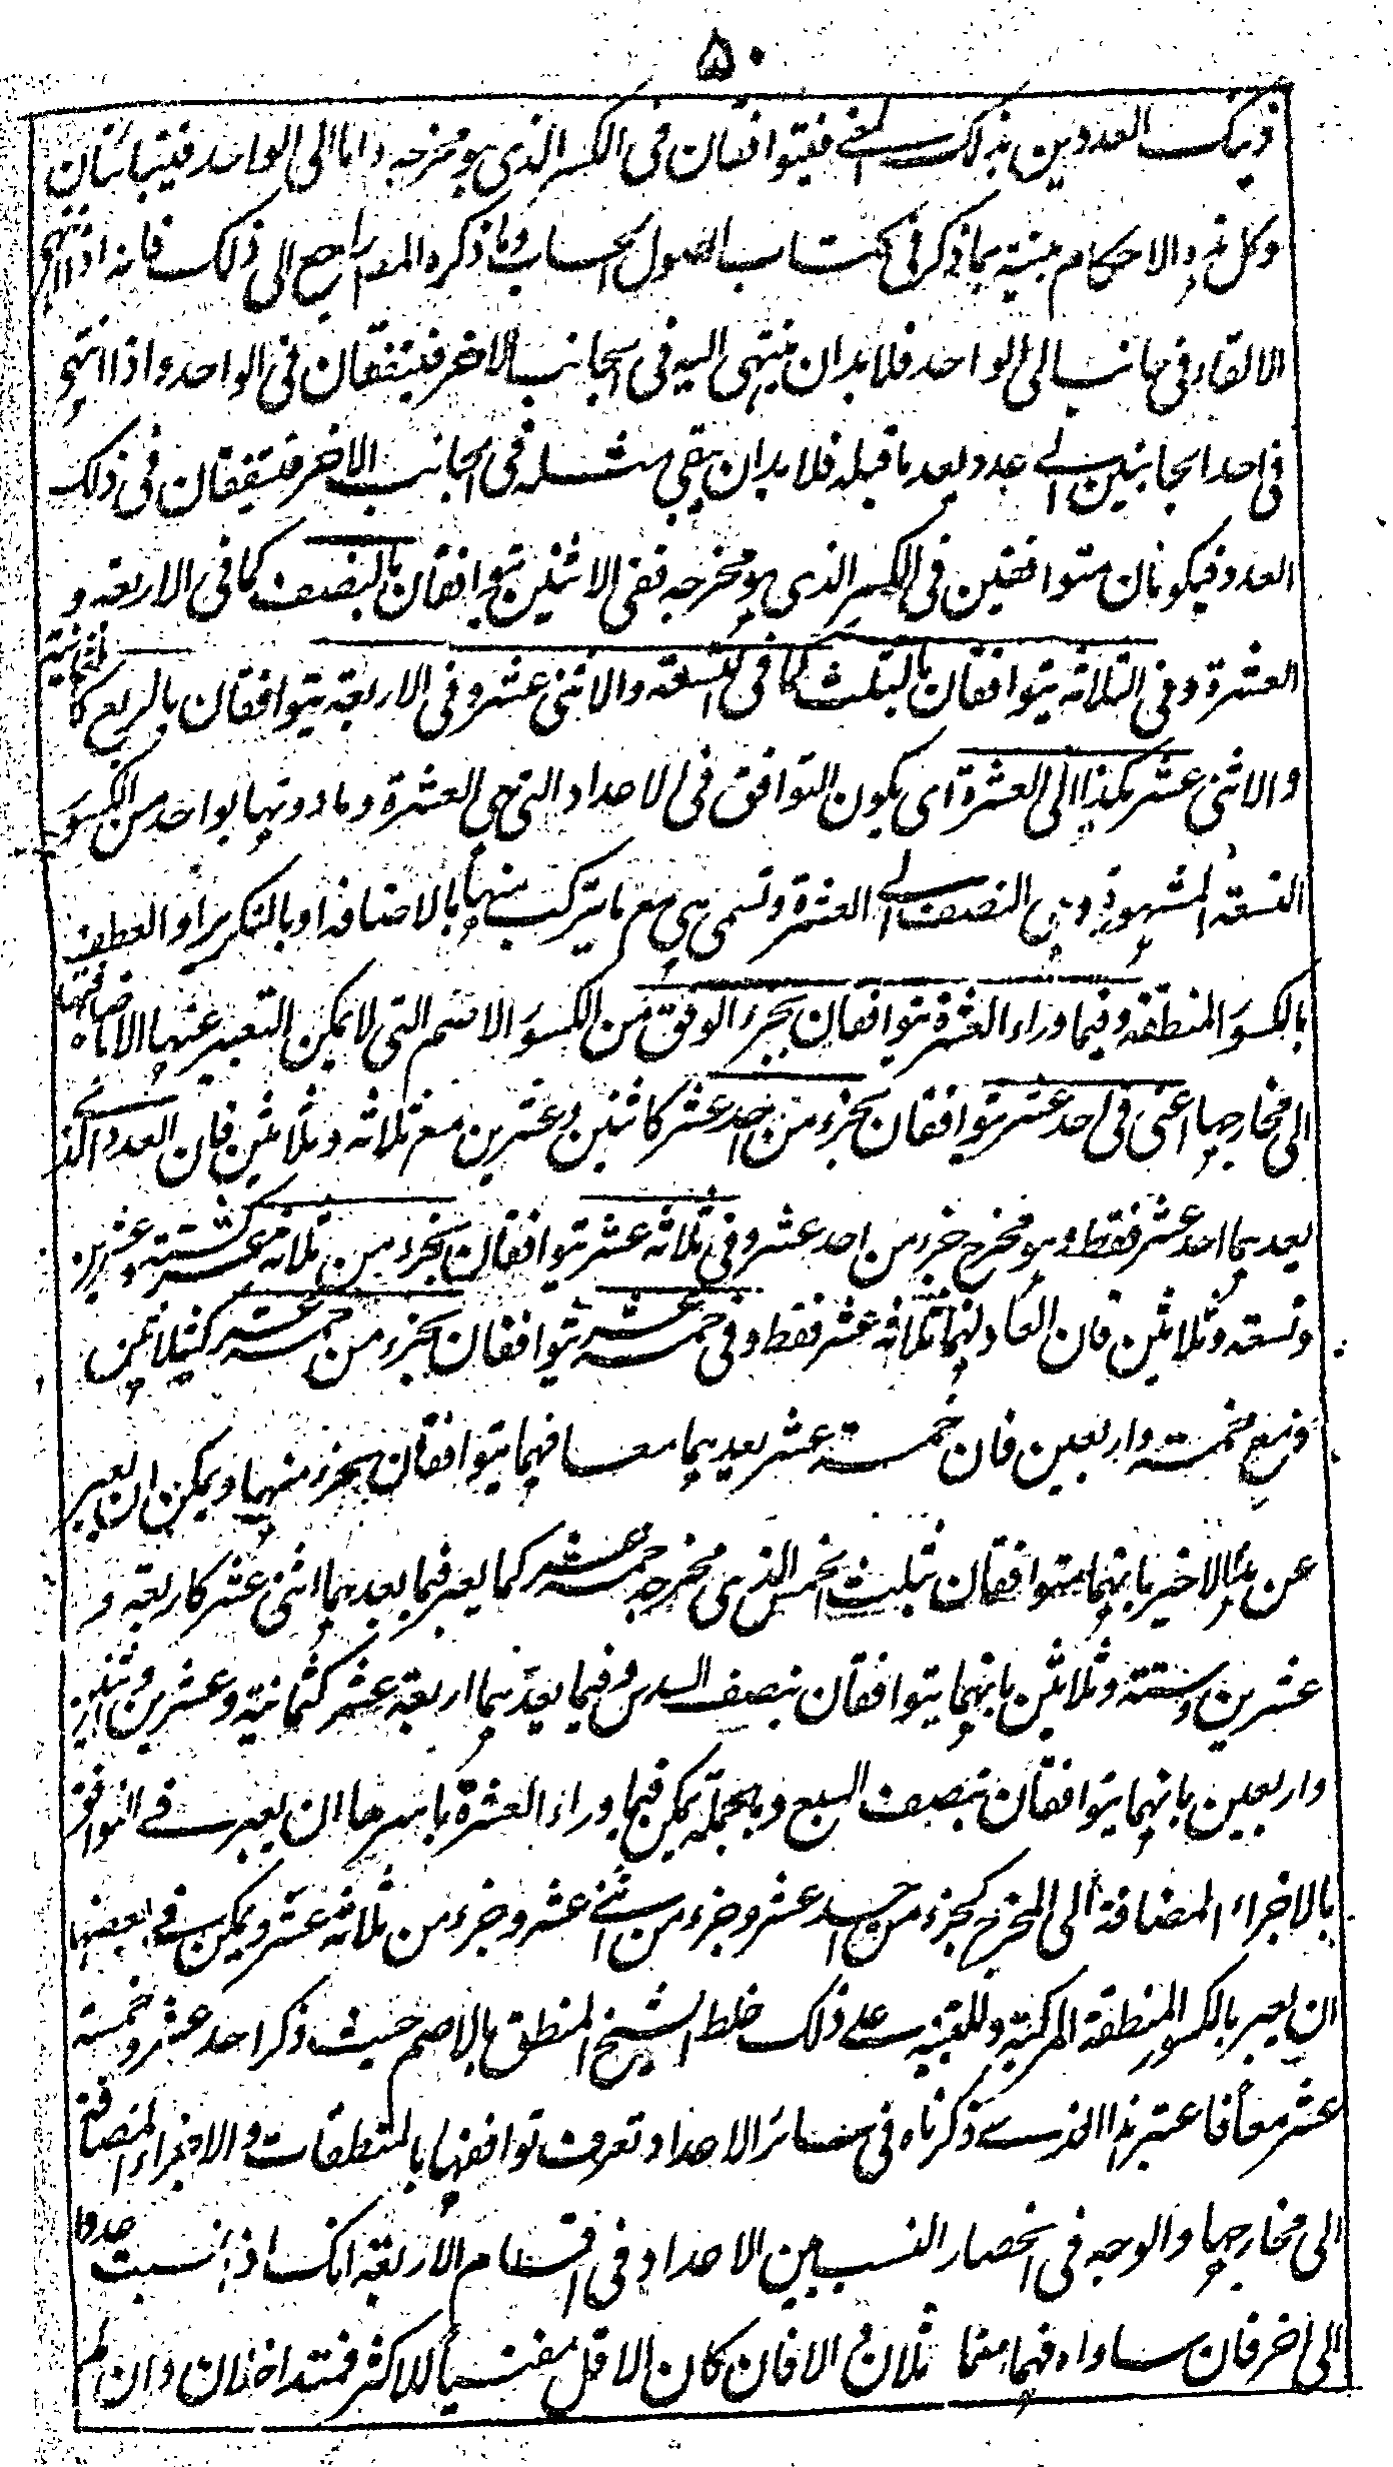 ۵۰
ذينك العددين بذلك الشئ فيتوافقان فى الكسر الذى هو مخرجه واما الى الواحد فيتباينان
وكل هذه الاحكام مبنية بما ذكر فى كتاب اصول الحساب وما ذكره المصراجع الى ذلك فانه اذا انتهى
الالقاء فى جانب الى الواحد فلا بد ان ينتهى اليه فى الجانب الاخر فيتفقان فى الواحد واذا انتهى
فى احد الجانبين الى عدد يعد ما قبله فلا بد ان يبقى مثله فى الجانب الاخر فيتفقان فى ذلك
العدد فيكونان متوافقين فى الكسر الذى هو مخرجه ففى الاثنين يتوافقان بالنصف كما فى الاربعة و
العشرة وفى الثلاثة يتوافقان بالثلث كما فى التسعة والاثنى عشر وفى الاربعة يتوافقان بالربع كالثمانية
والاثنى عشر هكذا الى العشرة اى يكون التوافق فى الاعداد التى هى العشرة وما دونها بواحد من الكسور
التسعة المشهورة وهى النصف الى العشرة وتسمى هى مع ما يتركب منها بالاضافة او بالتكرير او العطف
بالكسور المنطقة وفيما وراء العشرة يتوافقان بجزء الوفق من الكسور الاصم التى لا يمكن التعبير عنها الا باضافتها
الى مخارجها اعنى فى احد عشر يتوافقان بجزء من احد عشر كاثنين وعشرين مع ثلاثة وثلاثين فان العدد الذى
يعدهما احد عشر فقط وهو مخرج جزء من احد عشر وفى ثلاثة عشر يتوافقان بجزء من ثلاثة عشر كستة وعشرين
وتسعة وثلاثين فان العاد لهما ثلاثة عشر فقط وفى خمسة عشر يتوافقان بجزء من خمسة عشر كثلاثين
ومع خمسة واربعين فان خمسة عشر يعدهما معا فهما يتوافقان بجزء منها ويمكن ان يعبر
عن هذا الاخير بانهما متوافقان بثلث الخمس الذى مخرجه خمسة عشر كما يعبر فيما يعدهما اثنى عشر كاربعة و
عشرين وستة وثلاثين بانهما يتوافقان بنصف السدس وفيما يعدهما اربعة عشر كثمانية وعشرين واثنين
واربعين بانهما يتوافقان بنصف السبع وبالجملة يمكن فيما وراء العشرة باسرها ان يعبر فى التوافق
بالاجزاء المضافة الى المخرج كجزء من احد عشر وجزء من اثنى عشر وجزء من ثلاثة عشر ويمكن فى بعضها
ان يعبر بالكسور المنطقة المركبة وللتنبيه على ذلك خلط الشيخ المنطق بالاصم حيث ذكر احد عشر وخمسة
عشر معا فاعتبر هذا الذى ذكرناه فى سائر الاعداد تعرف توافقها بالمنطقات والاجزاء المضافة
الى مخارجها والوجه فى انحصار النسب بين الاعداد فى اقسام الاربعة انك اذا نسبت عددا
الى اخر فان ساواه فهما متماثلان والا فان كان الاقل مفنيا للاكثر فمتداخلان وان لم